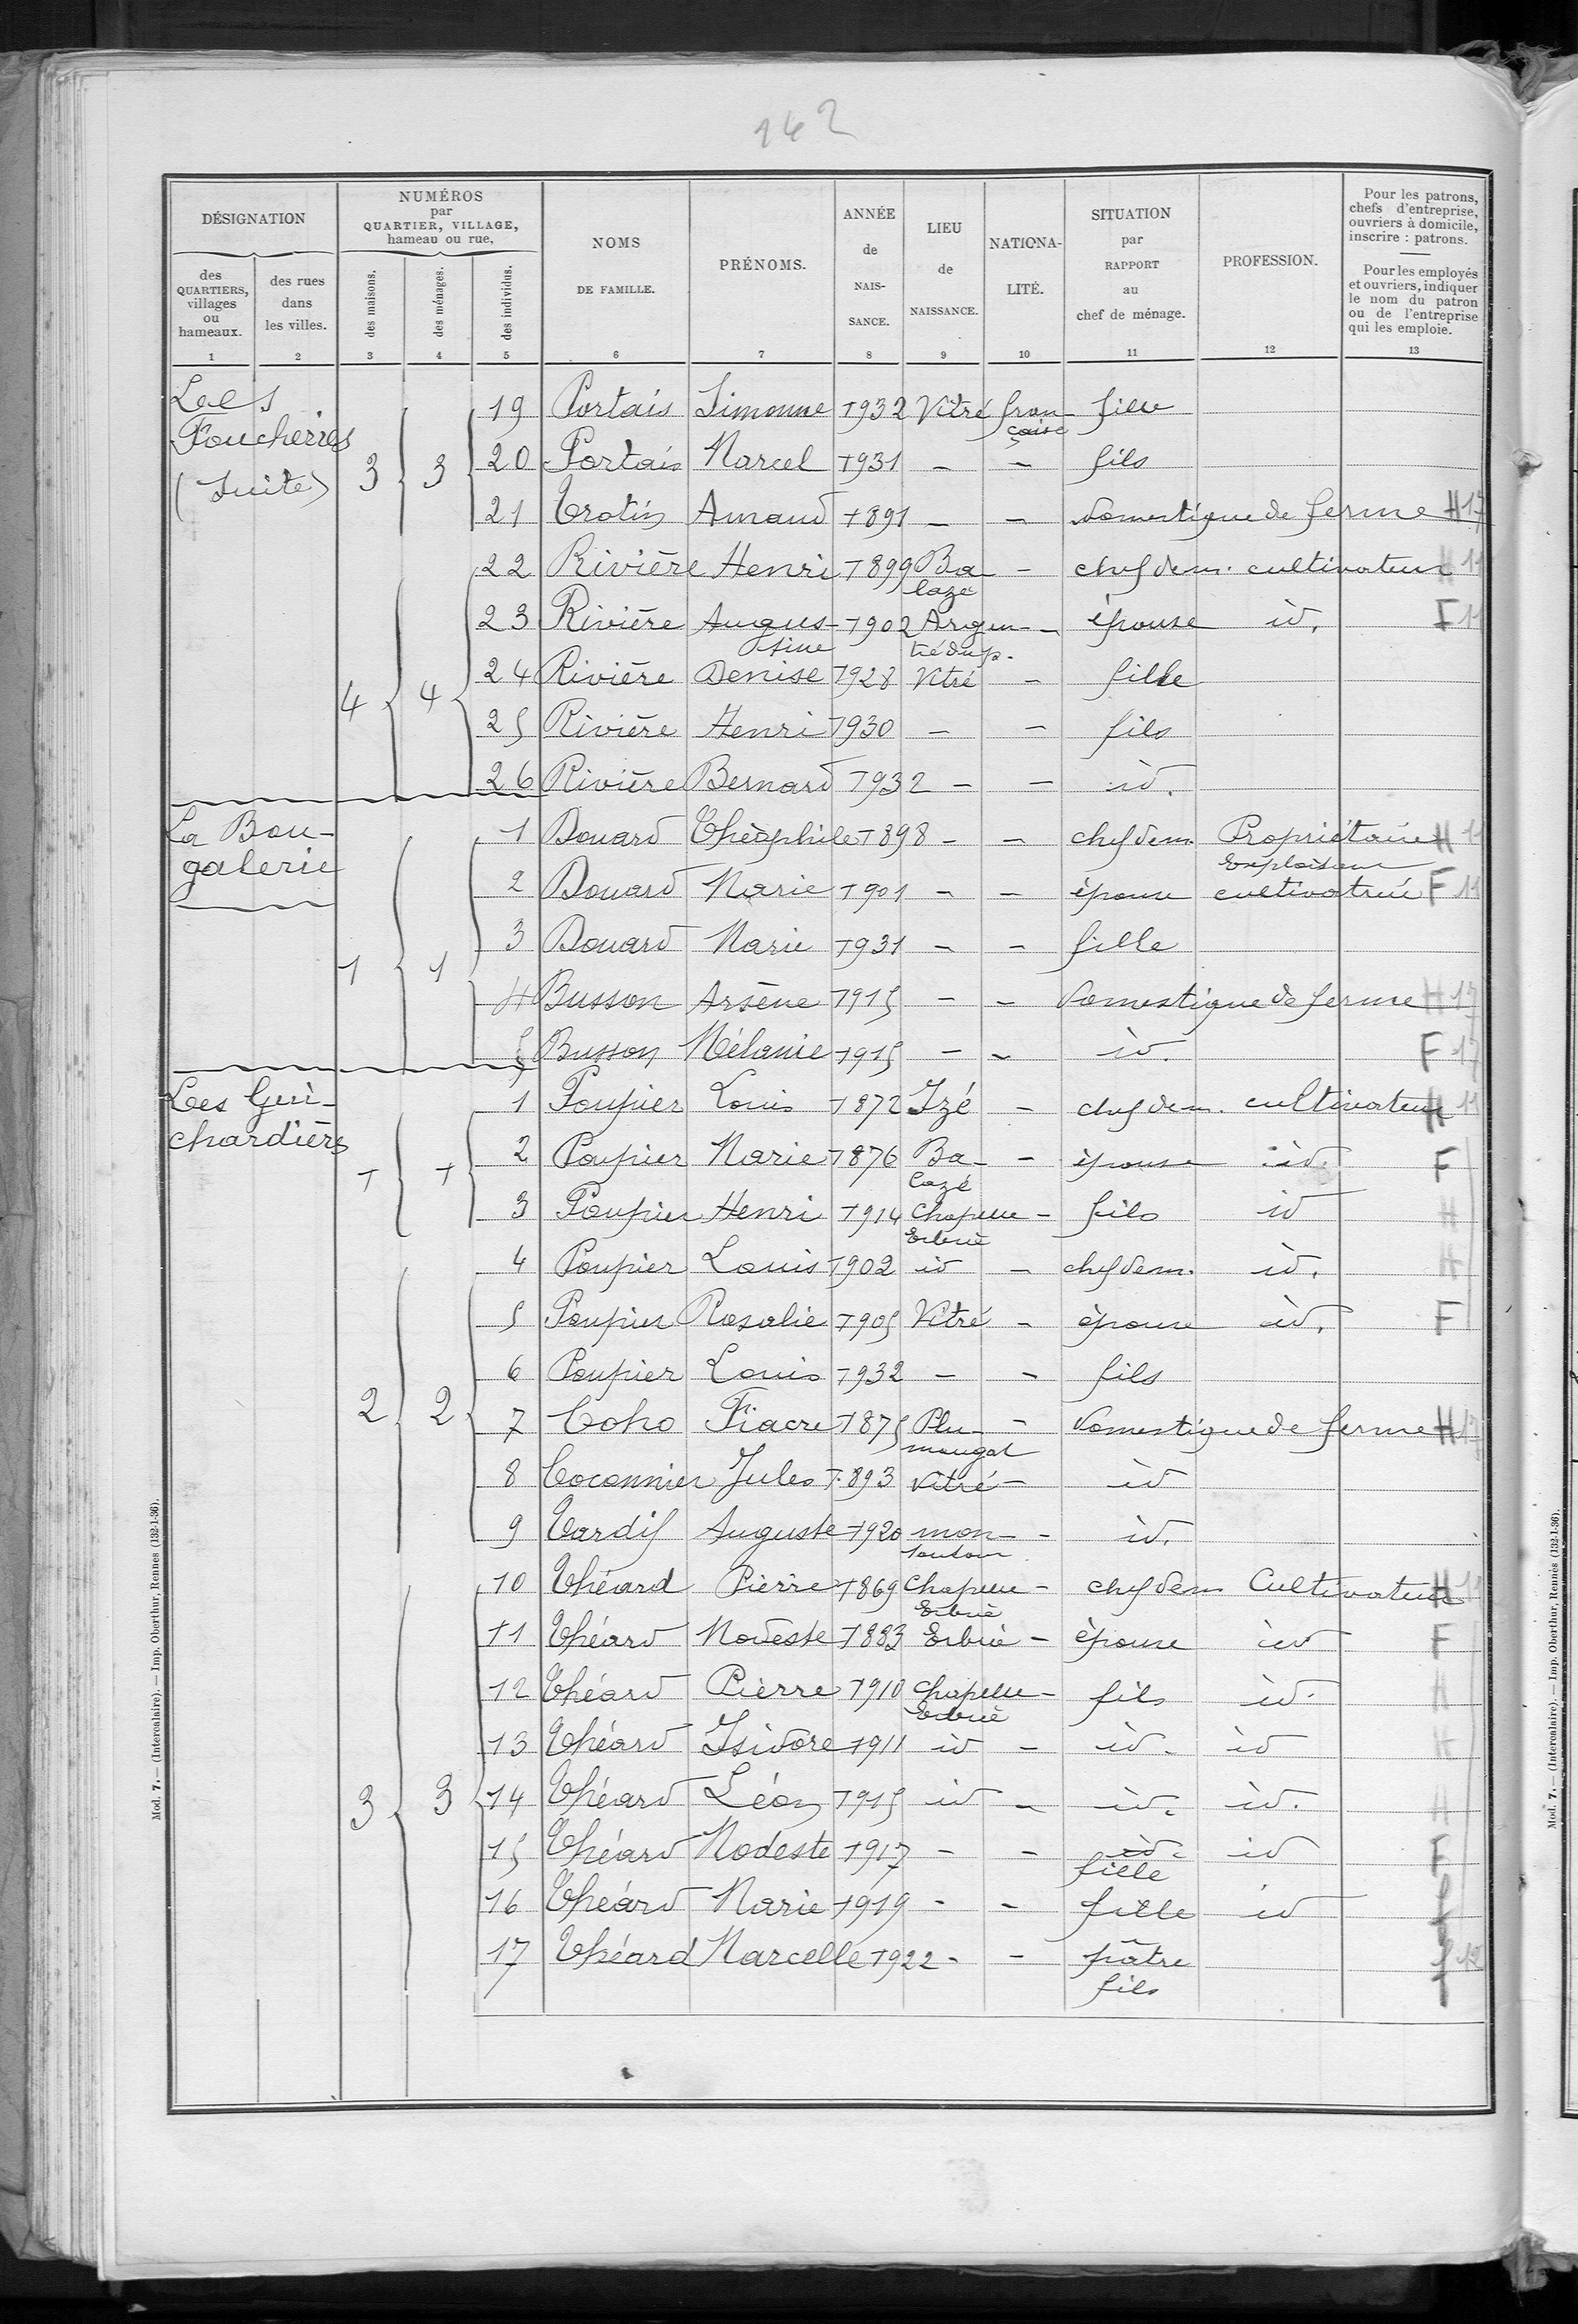 142
DÉSIGNATION
NUMÉROS
par
QUARTIER, VILLAGE,
hameau ou rue,
NOMS
DE FAMILLE.
PRÉNOMS.
ANNÉE
de
NAIS-
SANCE.
LIEU
de
NAISSANCE.
NATIONA-
LITÉ.
SITUATION
par
RAPPORT
au
chef de ménage.
PROFESSION.
Pour les patrons,
chefs d'entreprise,
ouvriers à domicile,
inscrire : patrons.
Pour les employés
et ouvriers, indiquer
le nom du patron
ou de l'entreprise
qui les emploie.
des
QUARTIERS,
villages
ou
hameaux.
des rues
dans
les villes.
des maisons.
des ménages.
des individus.
1 2 3 4 5 6 7 8 9 10 11 12 13
Les
Foucheries
(Suite)
3 3
19 Portais Simonne 1932 Vitré fran-
çaise fille
20 Portais Marcel 1931 - - fils
21 Trotin Amand 1891 - - domestique de ferme H 17
4 4
22 Rivière Henri 1899 Ba-
lazé - chef de m. cultivateur H 11
23 Rivière Augus-
tine 1902 Argen-
tré du p. - épouse id. F 11
24 Rivière Denise 1928 Vitré - fille
25 Rivière Henri 1930 - - fils
26 Rivière Bernard 1932 - - id.
La Bou-
galerie
1 1
1 Douard Théophile 1898 - - chef dem. Propriétaire H 11
Exploitant
2 Douard Marie 1901 - - épouse cultivatrice F 11
3 Douard Marie 1931 - - fille
4 Busson Arsène 1915 - - domestique de ferme H 17
5 Busson Mélanie 1915 - - id. F 17
Les Gui-
chardières
1 1
1 Poupier Louis 1872 Izé - chef dem. cultivateur H 11
2 Poupier Marie 1876 Ba-
lazé - épouse id. F
3 Poupier Henri 1914 Chapelle
Erbrée - fils id H
2 2
4 Poupier Louis 1902 id - chef dem. id. H
5 Poupier Rosalie 1905 Vitré - épouse id. F
6 Poupier Louis 1932 - - fils
7 Coho Fiacre 1875 Plu-
maugat - domestique de ferme H 17
8 Coconnier Jules 1893 Vitré - id
9 Tardif Auguste 1920 mon-
tautour - id.
3 3
10 Théard Pierre 1869 Chapelle
Erbrée - chef dem Cultivateur H 11
11 Théard Modeste 1883 Erbrée - épouse id F
12 Théard Pierre 1910 Chapelle
Erbrée - fils id. H
13 Théard Isidore 1911 id - id. id H
14 Théard Léon 1915 id - id. id. H
15 Théard Modeste 1917 - - id. id F
fille
16 Théard Marie 1919 - - fille id f
17 Théard Marcelle 1922 - - pâtre f 12
fils
Mod. 7. — (Intercalaire). — Imp. Oberthur, Rennes (132-1-36).
Mod. 7. — (Intercalaire). — Imp. Oberthur, Rennes (132-1-36).